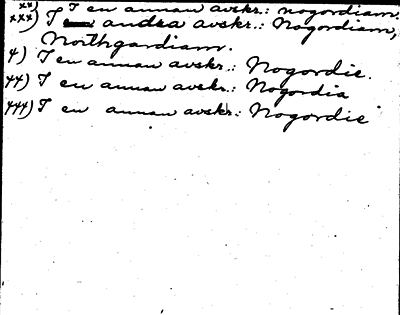 xx) I en annan avskr.: nogordiam.
xxx) I andra avskr.: Nogordiam,
Northgardiam.
+) I en annan avskr.: Nogordie.
++) I en annan avskr.: Nogordia
+++) I en annan avskr.: Nogordie